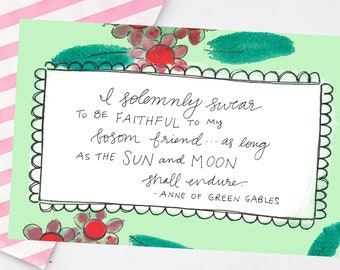 I solemnly swear
TO BE FAITHFUL TO MY
bosom friend... as long
AS THE SUN and MOON
shall endure.
-ANNE OF GREEN GABLES